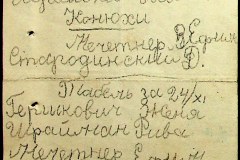 Конюхи
Мечетнер В. Ефим
Стародинский Д.
Табель за 24/XI
Гершкович Женя
Шрайман Рива
Мечетнер Ефим